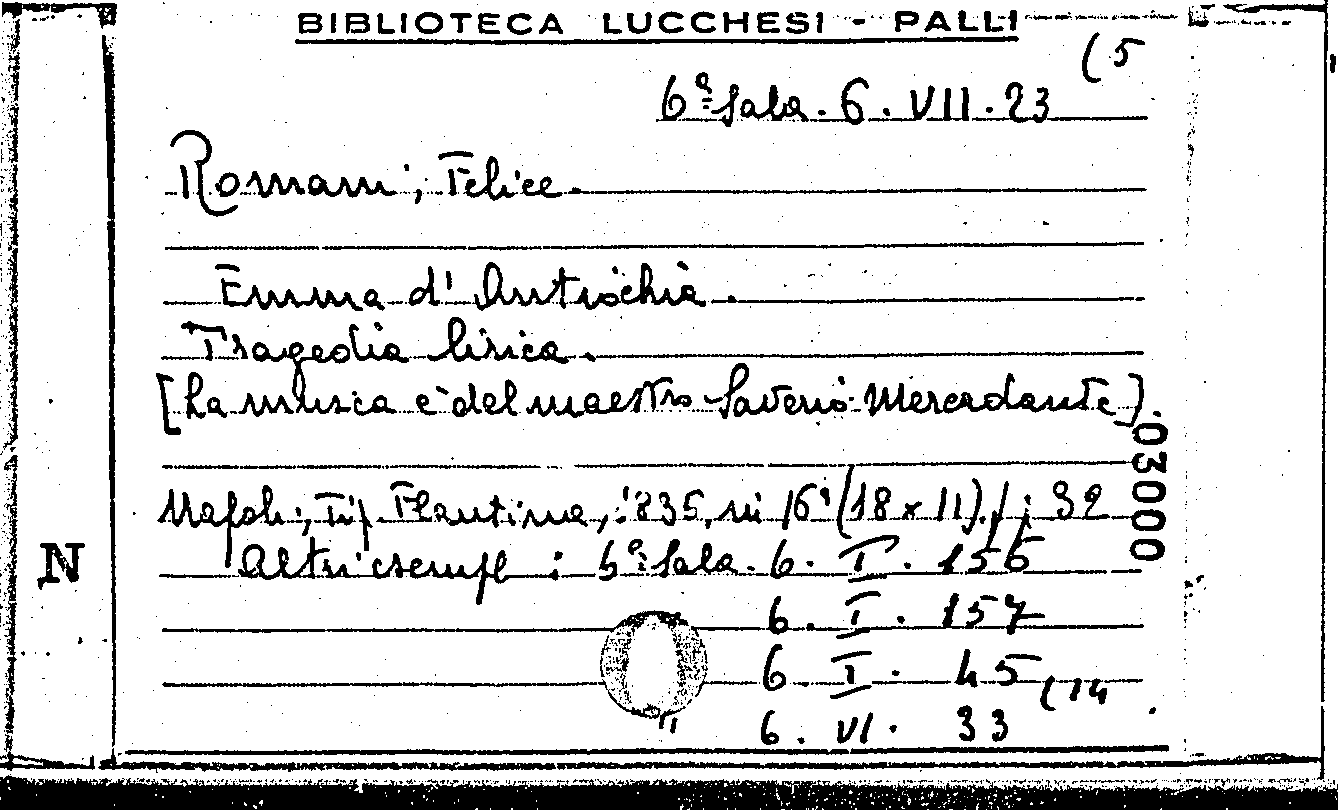 BIBLIOTECA LUCCHESI - PALLI
(5
6ª Sala. 6. VII. 23
Romani, Felice.
Emma d'Antiochia.
Tragedia lirica.
[La musica è del maestro Saverio Mercadante].
03000
Napoli, Tip. Flautina, 1835, in 16° (18 x 11), p. 32
Altri esempl: 6ª Sala. 6. I. 156
N
6. I. 157
6. I. 45 (14
" 6. VI. 33